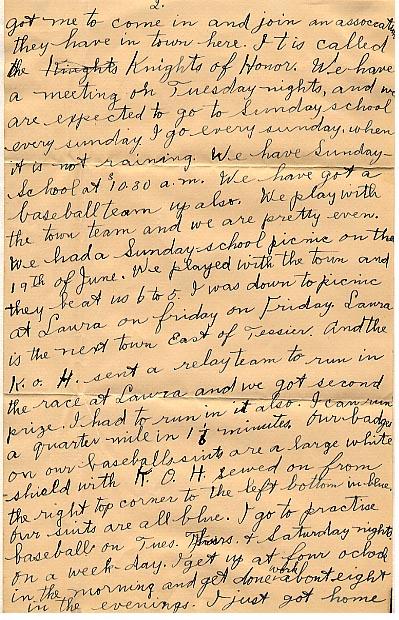 2.
got me to come in and join an assoceation
they have in town here. It is called
the Hnights Knights of Honor. We have
a meeting on Tuesday nights, and we
are expected to go to Sunday-school
every sunday. I go every sunday, when
it is not raining. We have Sunday-
School at 10.30 a.m. We have got a
baseball team up also. We play with
the town team and we are pretty even.
We had a Sunday-school picnic on the
19TH of June. We played with the town and
they beat us 6 to 5. I was down to picnic
at Laura on friday on Friday. Laura
is the next town East of Tessier. And the
K. o H. sent a relay team to run in
the race at Laura and we got second
prize. I had to run in it also. I can run
a quarter mile in 1 1/8 minutes. Our badge
on our baseball suits are a large white
shield with K. O. H. sewed on from
the right top corner to the left bottom in blue.
Our suits are all blue. I go to practise
baseball on Tues. Thurs. & Saturday nights
on a week-day. I get up at four oclock
in the morning and get done work about eight
in the evenings. I just got home